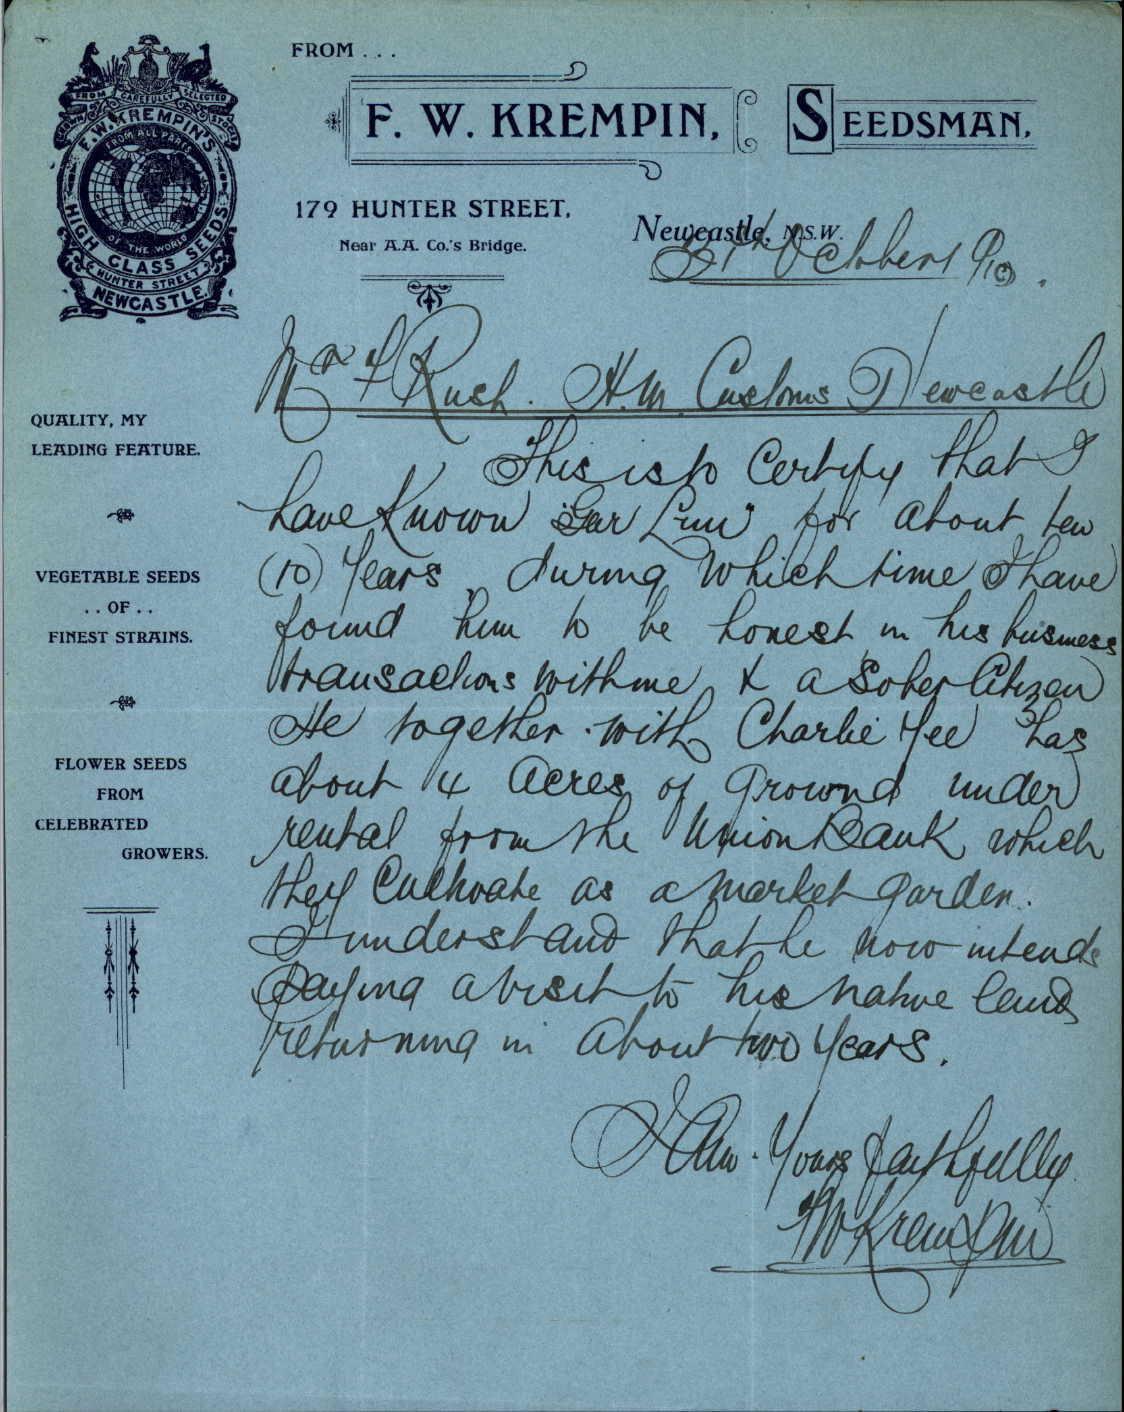 FROM . . .
F. W. KREMPIN, SEEDSMAN,
179 HUNTER STREET,
Near A.A. Co.'s Bridge.
Newcastle, N.S.W.
31st October 1910.
FROM CAREFULLY SELECTED
GROWN STOCKS
F. W. KREMPIN'S
FROM ALL PARTS
OF THE WORLD
HIGH CLASS SEEDS
HUNTER STREET
NEWCASTLE.
QUALITY, MY
LEADING FEATURE.
VEGETABLE SEEDS
. . OF . .
FINEST STRAINS.
FLOWER SEEDS
FROM
CELEBRATED
GROWERS.
Mr F Rush. H.M. Customs Newcastle
This is to Certify that I
have Known "Gar Lun" for about ten
(10) Years, during Which time I have
found him to be honest in his business
transactions with me & a Sober Citizen
He together with Charlie Yee has
about 4 Acres of Ground under
rental from the Union Bank which
they Cultivate as a market garden.
I understand that he now intends
Paying a visit to his native land
returning in about two Years.
I Am Yours faithfully
FW Krempin